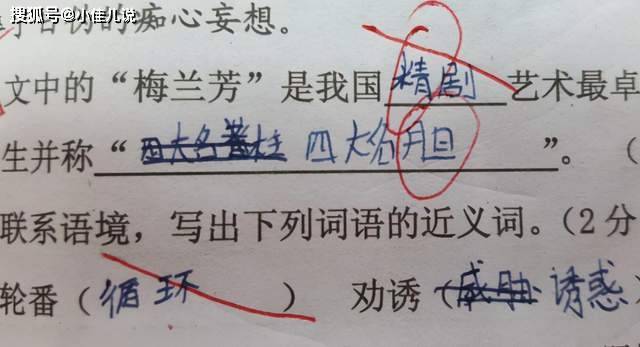 搜狐号@小佳儿说
的痴心妄想。
文中的“梅兰芳”是我国精剧艺术最卓
生并称“四大名著柱 四大名胆”。（
联系语境，写出下列词语的近义词。（2分
轮番（循环） 劝诱（威胁 诱惑）